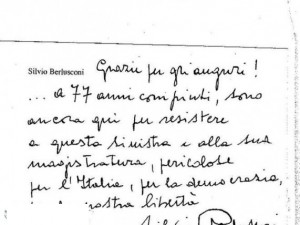 Silvio Berlusconi
Grazie per gli auguri!
... a 77 anni compiuti, sono
ancora qui per resistere
a questa sinistra e alla sua
magistratura, pericolose
per l'Italia, per la democrazia,
nostra libertà